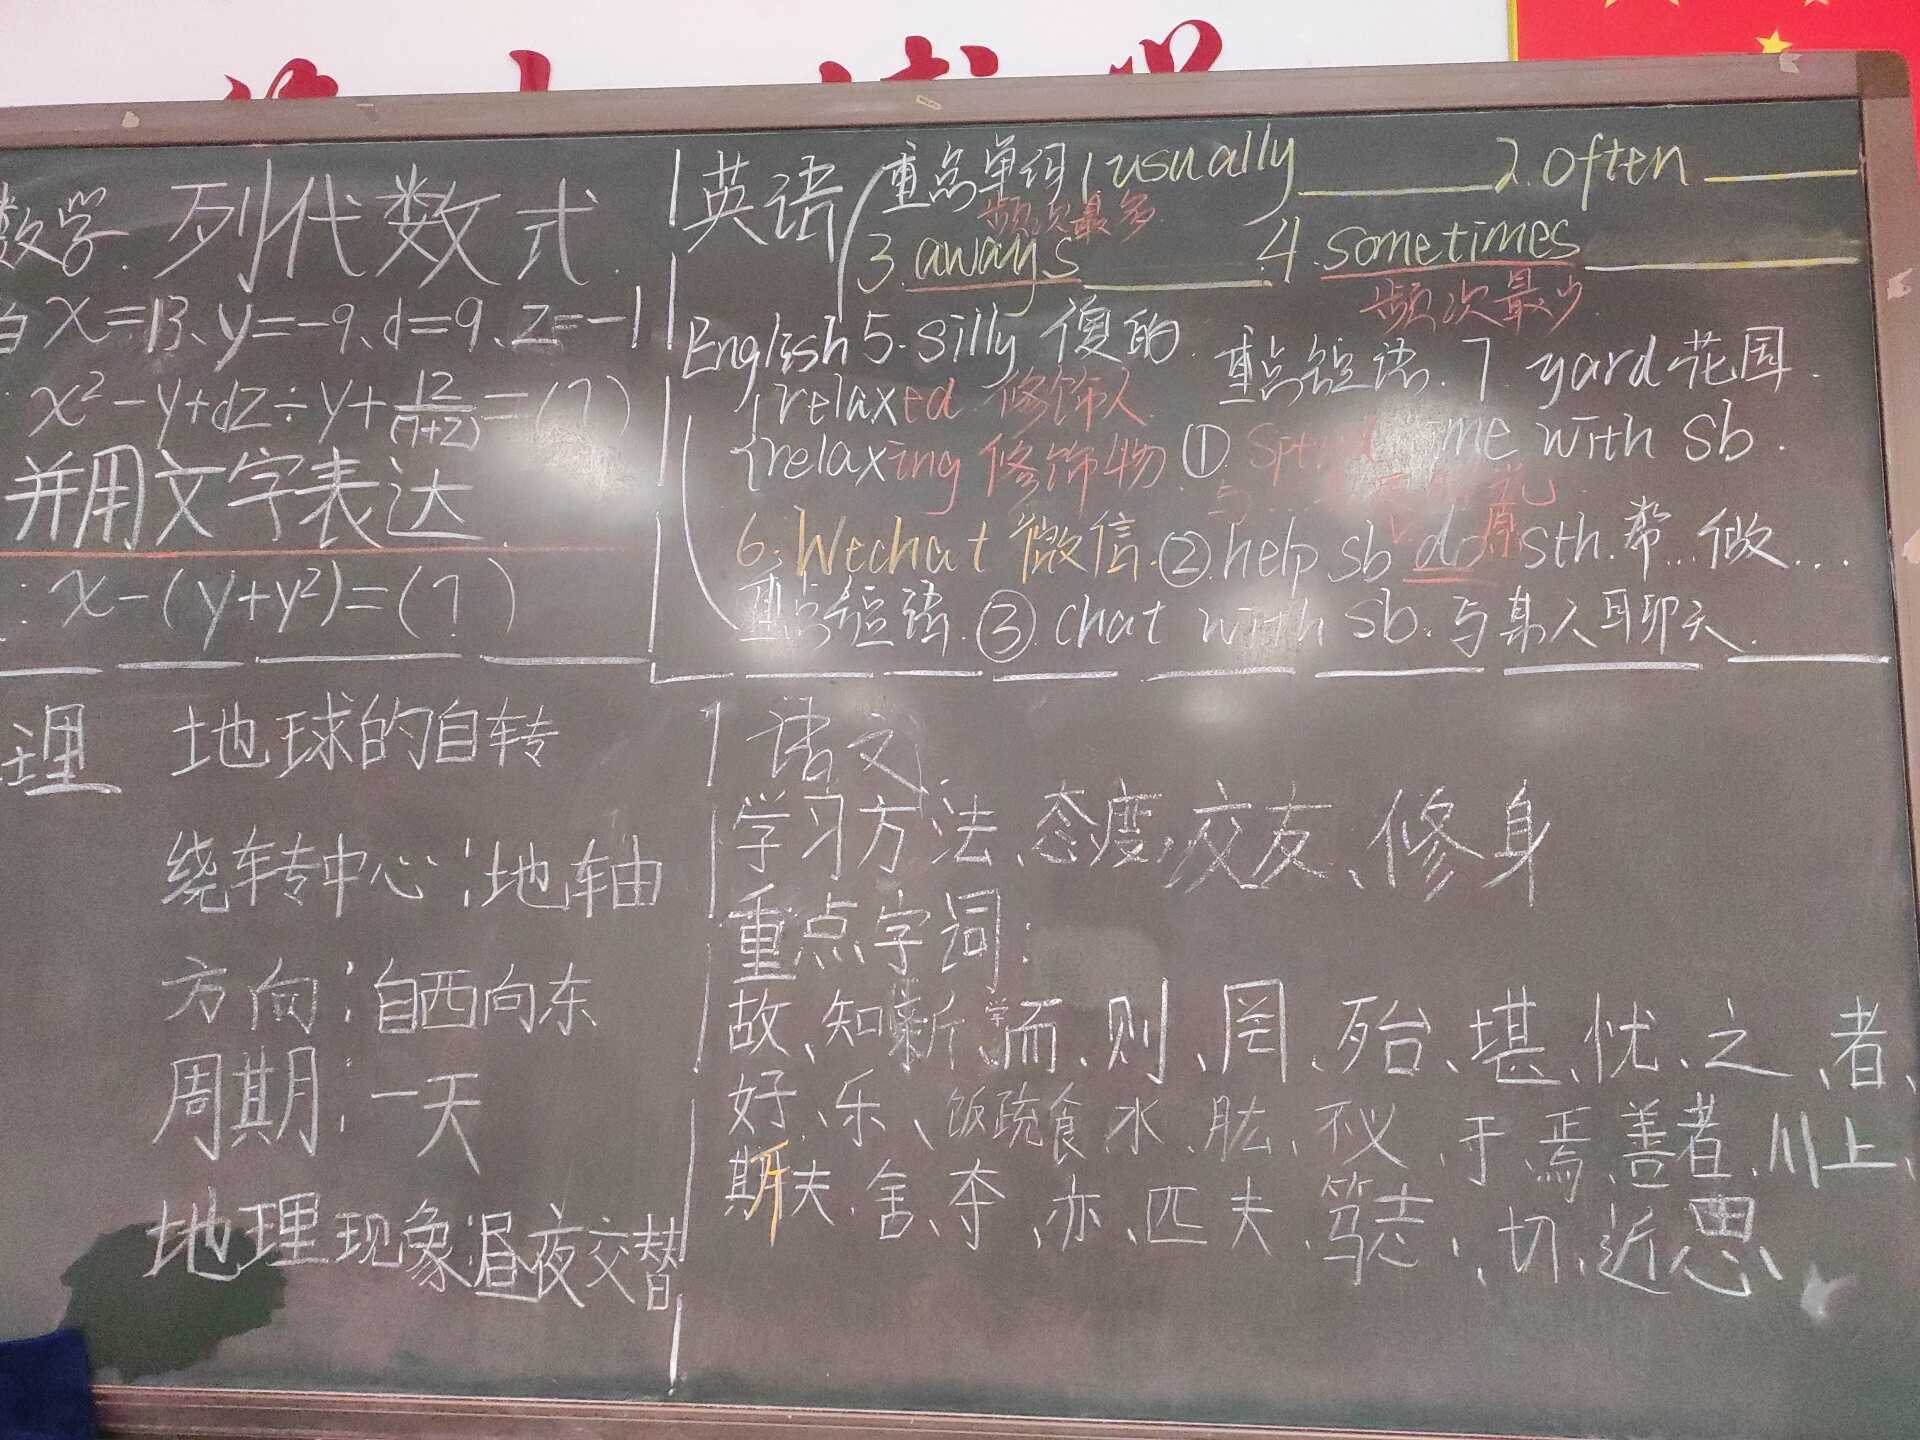 数学. 列代数式.
当x=13、y=-9、d=9、z=-1
x²-y+dz÷y+12/(7+z)=(?)
并用文字表达.
x-(y+y²)=(?)
英语
重点单词 1 usually 2. often
频次最多
3. aways 4. sometimes
频次最少
English 5. silly 傻的.
relaxed 修饰人
relaxing 修饰物.
6. Wechat 微信.
重点短语. 7. yard 花园.
① me with sb.
②. help sb do 原 sth. 帮...做...
重点短语. ③ chat with sb. 与某人聊天.
理 地球的自转
绕转中心:地轴
方向:自西向东
周期:一天
地理现象 昼夜交替
语文
学习方法、态度、交友、修身
重点字词:
故、知新、学而、则、罔、殆、堪、忧、之、者、
好、乐、饭疏食、水、肱、不义、于、焉、善者、川上、
斯夫、舍、夺、亦、匹夫、笃志、切、近思、